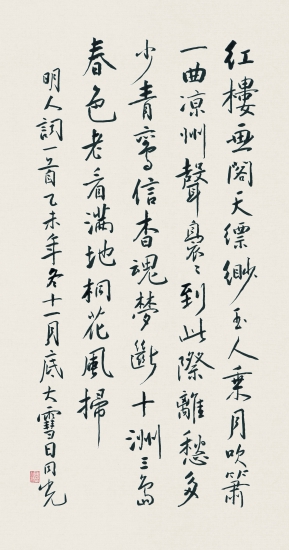 紅樓画閣天縹緲玉人乘月吹簫
一曲凉州聲裊々到此際離愁多
少青鸞信杳魂夢斷十洲三島
春色老看滿地桐花風掃
明人詞一首乙未年冬十一月底大雪日同光